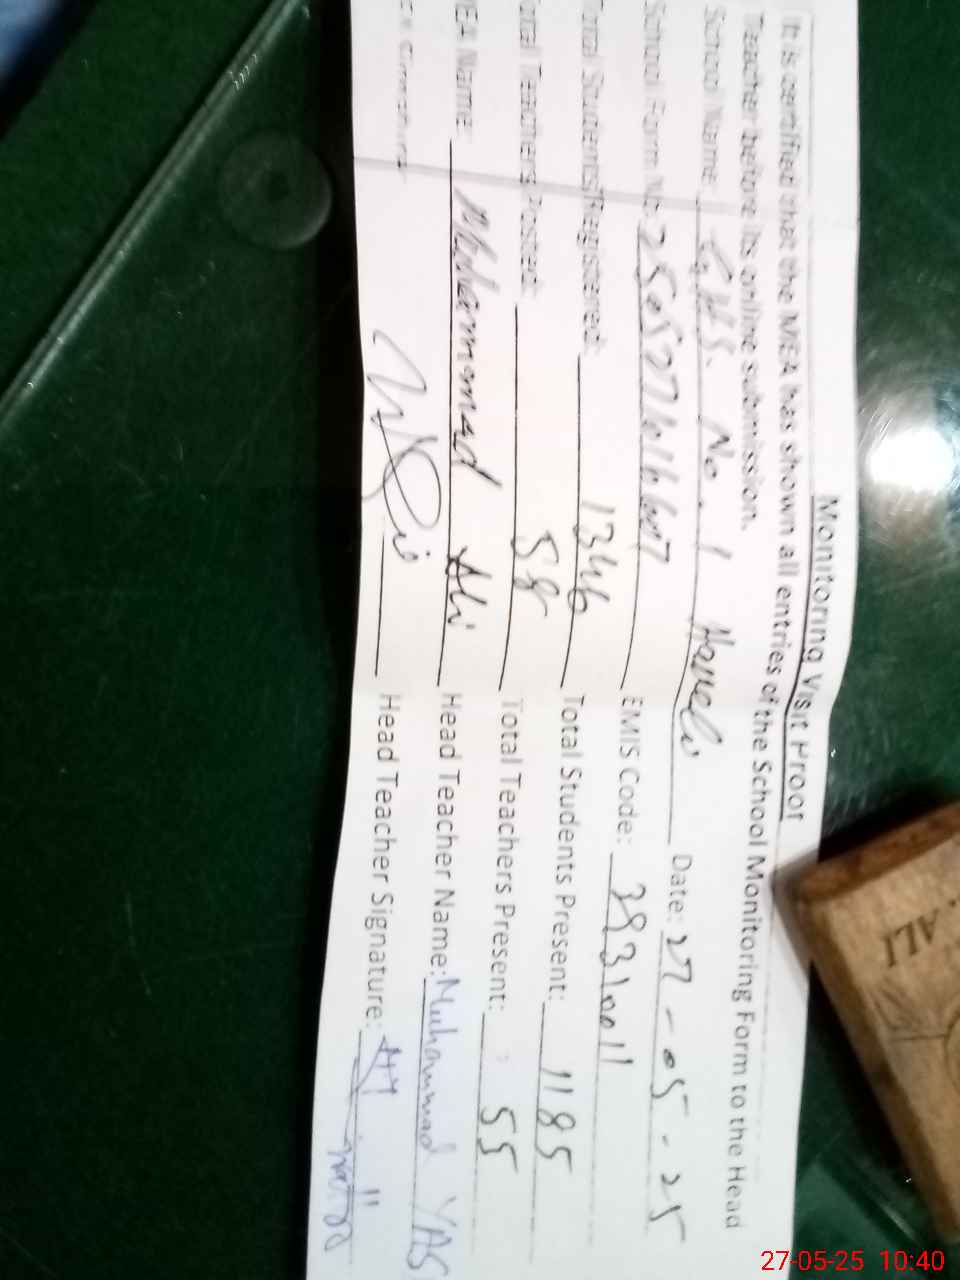 Monitoring Visit Proof
It is certified that the MEA has shown all entries of the School Monitoring Form to the Head
Teacher before its online submission.
School Name: G.H.S. No. 1 Date: 27-05-25
School Form No: EMIS Code: 38310011
Total Students Registered: 1346 Total Students Present: 1185
Total Teachers Posted: 58 Total Teachers Present: 55
MEA Name: Mohammad Ali Head Teacher Name: Muhammad
Head Teacher Signature:
ALI
27-05-25 10:40